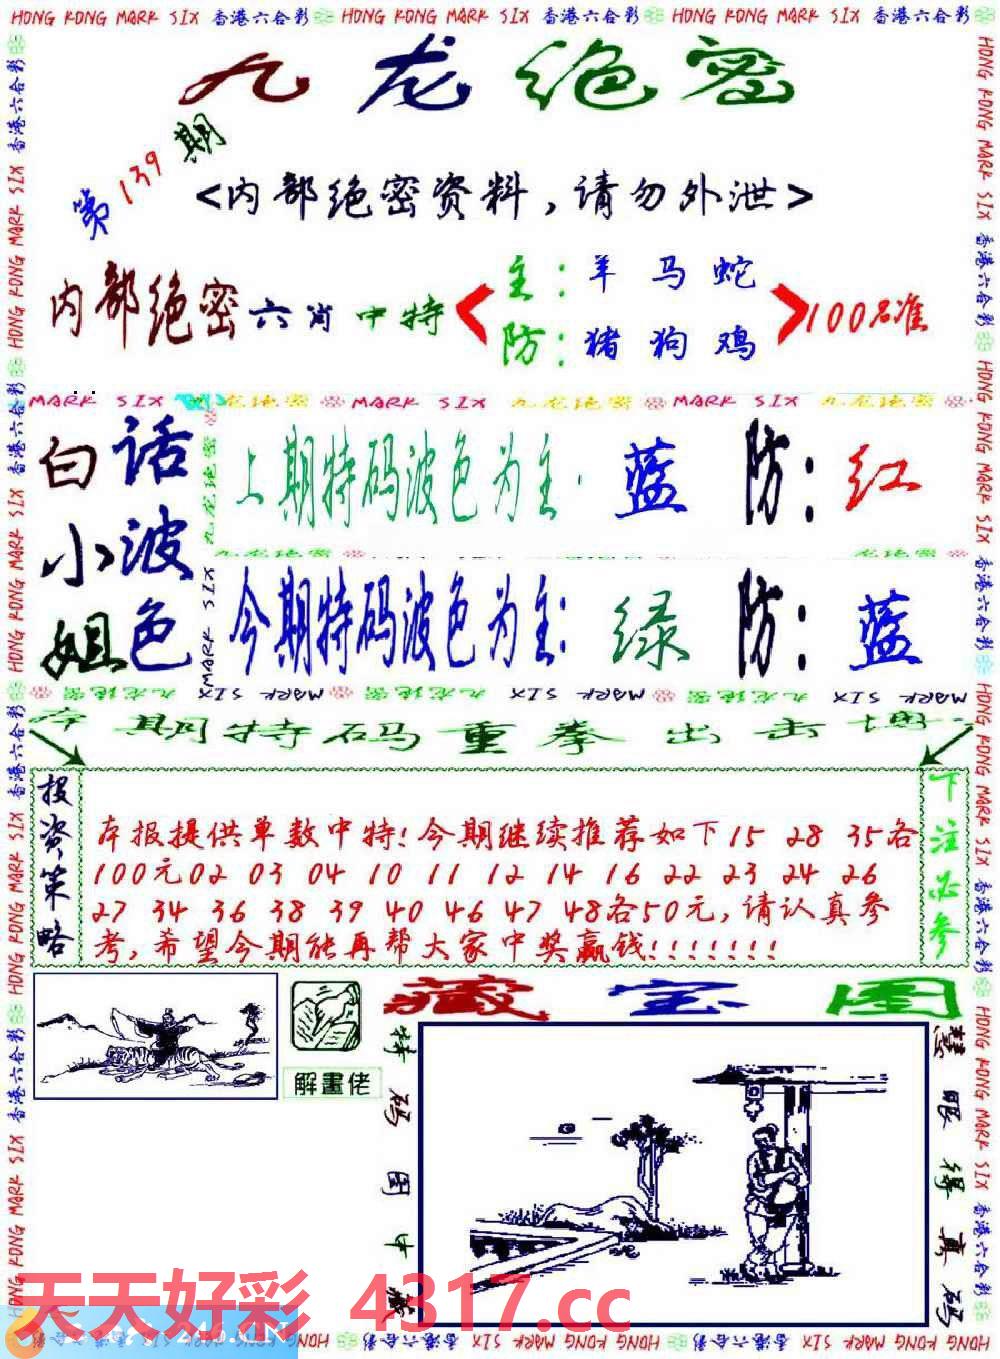 HONG KONG MARK SIX 香港六合彩 HONG KONG MARK SIX 香港六合彩 HONG KONG MARK SIX 香港六合彩
九龙绝密
第139期
<内部绝密资料,请勿外泄>
内部绝密六肖中特
主:羊 马 蛇
防:猪 狗 鸡
100%准
MARK SIX 九龙绝密 MARK SIX 九龙绝密 MARK SIX 九龙绝密
白小姐
话波色
上期特码波色为主: 蓝 防:红
今期特码波色为主: 绿 防:蓝
本期特码重拳出击
投资策略
本报提供单数中特!今期继续推荐如下15 28 35各
100元02 03 04 10 11 12 14 16 22 23 24 26
27 34 36 38 39 40 46 47 48各50元,请认真参
考,希望今期能再帮大家中奖赢钱!!!!!!!
下注必参
解畫佬
藏宝图
特码图中藏
慧眼得真码
天天好彩 4317.cc
246.CIN
HONG KONG MARK SIX 香港六合彩 HONG KONG MARK SIX 香港六合彩